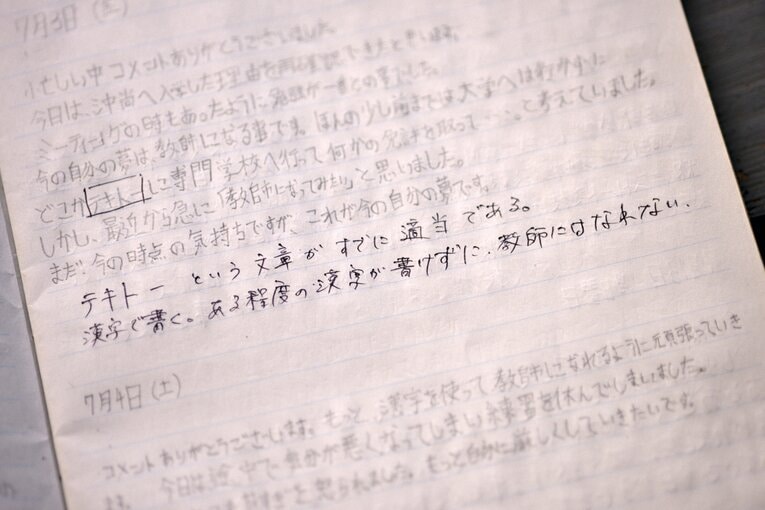 7月3日（金）
忙しい中コメントありがとうございました。
今日は、沖尚へ入学した理由を再確認できたと思います。
ミーティングの時もあったように発想が一番との事でした。
今の自分の夢は、教師になる事です。ほんの少し前までは大学へは行かずに
どこかテキトーに専門学校へ行って何かの免許を取って・・・。と考えていました。
しかし、最近から急に「教師になってみたい」と思いました。
まだ、今の時点の気持ちですが、これが今の自分の夢です。
テキトー という文章がすでに適当である。
漢字で書く。ある程度の漢字が書けずに、教師にはなれない、
7月4日（土）
コメントありがとうございます。もっと漢字を使って教師になれるように頑張っていき
ます。今日は途中で気分が悪くなってしまい練習を休んでしまいました。
を怒られました。もっと自分に厳しくしていきたいです。